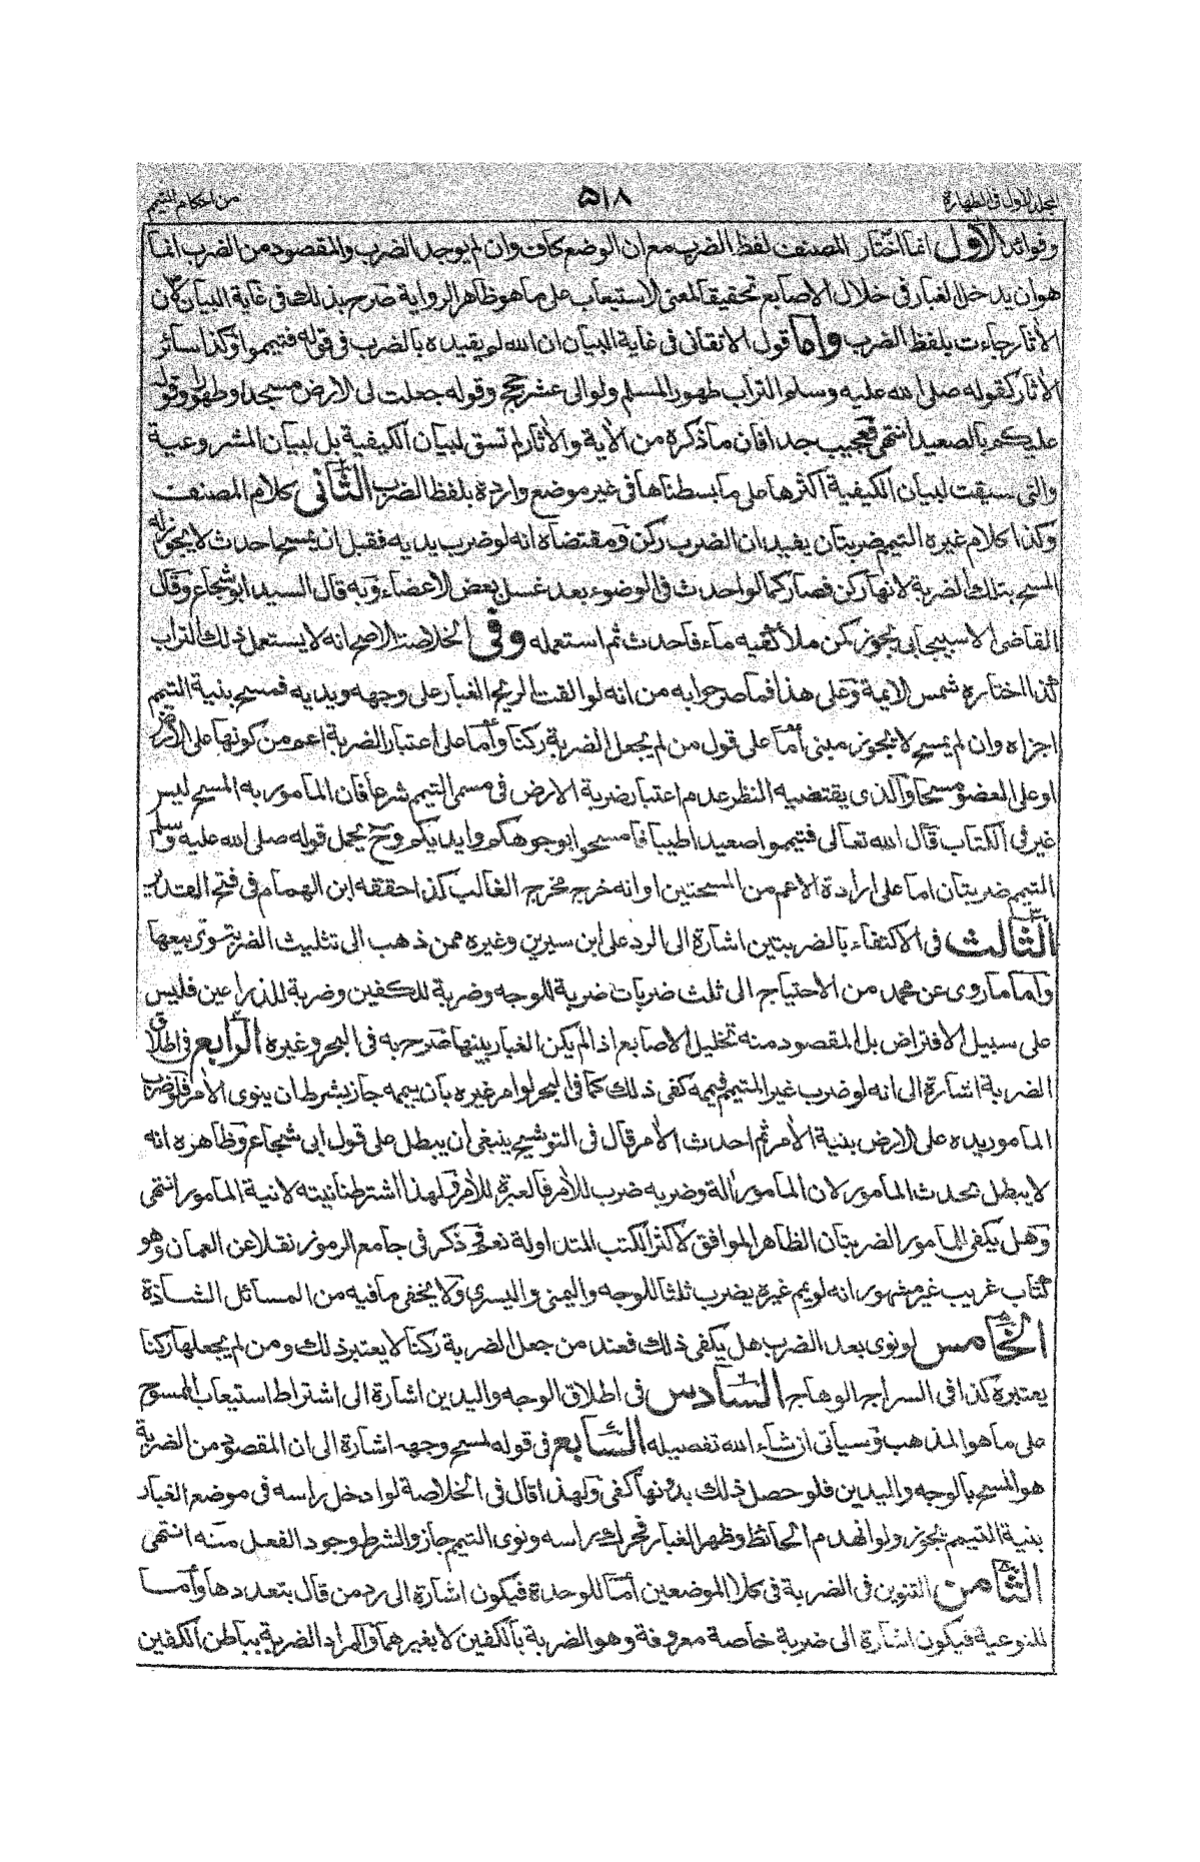 المجلد الاول فى الطهارة ٥١٨ من احكام التيمم
وفوائد الاول انما اختار المصنف لفظ الضرب مع ان الوضع كاف وان لم يوجد الضرب والمقصود من الضرب انما
هو ان يدخل الغبار فى خلال الاصابع تحقيقا لمعنى الاستيعاب على ما هو ظاهر الرواية صرح بذلك فى غاية البيان لان
الأثار جاءت بلفظ الضرب واما قول الاتقانى فى غاية البيان ان الله لم يقيده بالضرب فى قوله فتيمموا وكذا سائر
الأثار كقوله صلى الله عليه وسلم التراب طهور المسلم ولو الى عشر حجج وقوله جعلت لى الارض مسجدا وطهورا وقوله
عليكم بالصعيد انتهى فعجيب جدا فان ما ذكره من الأية والأثار لم تسق لبيان الكيفية بل لبيان المشروعية
والتى سيقت لبيان الكيفية اكثرها على ما بسطناها فى غير موضع واردة بلفظ الضرب الثانى كلام المصنف
وكذا كلام غيره التيمم ضربتان يفيد ان الضرب ركن ومقتضاه انه لو ضرب يديه فقبل ان يمسح احدث لا يجوز له
المسح بتلك الضربة لانها ركن فصار كما لو احدث فى الوضوء بعد غسل بعض الاعضاء وبه قال السيد ابو شجاع وقال
القاضى الاسبيجابى يجوز كمن ملأ كفيه ماء فاحدث ثم استعمله وفى الخلاصة الاصح انه لا يستعمل ذلك التراب
كذا اختاره شمس الايمة وعلى هذا فما صرحوا به من انه لو القت الريح الغبار على وجهه ويديه فمسح بنية التيمم
اجزاه وان لم يمسح لا يجوز مبنى اما على قول من لم يجعل الضربة ركنا واما على اعتبار الضربة اعم من كونها على الارض
او على العضو مسحا والذى يقتضيه النظر عدم اعتبار ضربة الارض فى مسمى التيمم شرعا فان المأمور به المسح ليس
غير فى الكتاب قال الله تعالى فتيمموا صعيدا طيبا فامسحوا بوجوهكم وايديكم وح يحمل قوله صلى الله عليه وسلم
التيمم ضربتان اما على ارادة الاعم من المسحتين او انه خرج مخرج الغالب كذا حققه ابن الهمام فى فتح القدير
الثالث فى الاكتفاء بالضربتين اشارة الى الرد على ابن سيرين وغيره ممن ذهب الى تثليث الضربة
واما ما روى عن محمد من الاحتياج الى ثلث ضربات ضربة للوجه وضربة للكفين وضربة للذراعين فليس
على سبيل الافتراض بل المقصود منه تخليل الاصابع اذا لم يكن الغبار بينها صرح به فى البحر وغيره الرابع فى اطلاق
الضربة اشارة الى انه لو ضرب غير المتيمم فيممه كفى ذلك كما فى البحر لو امر غيره بان ييممه جاز بشرط ان ينوى الأمر فلو ضرب
المأمور يده على الارض بنية الأمر ثم احدث الأمر قال فى التوشيح ينبغى ان يبطل على قول ابى شجاع وظاهره انه
لا يبطل بحدث المأمور لان المأمور ألة وضربه ضرب للأمر فالعبرة للأمر ولهذا اشترطنا نيته لا نية المأمور انتهى
وهل يكفى للمأمور الضربتان الظاهر الموافق لاكثر الكتب المتداولة نعم ذكر فى جامع الرموز نقلا عن العمان وهو
كتاب غريب غير مشهور انه لو يمم غيره يضرب ثلثا للوجه واليمنى واليسرى ولا يخفى ما فيه من المسائل الشاذة
الخامس لو نوى بعد الضرب هل يكفى ذلك فعند من جعل الضربة ركنا لا يعتبر ذلك ومن لم يجعلها ركنا
يعتبره كذا فى السراج الوهاج السادس فى اطلاق الوجه واليدين اشارة الى اشتراط استيعاب الممسوح
على ما هو المذهب وسياتى ان شاء الله تفصيله السابع فى قوله لمسح وجهه اشارة الى ان المقصود من الضربة
هو المسح بالوجه واليدين فلو حصل ذلك بدونها كفى ولهذا قال فى الخلاصة لو ادخل راسه فى موضع الغبار
بنية التيمم يجوز ولو انهدم الحائط وظهر الغبار فحرك راسه ونوى التيمم جاز والشرط وجود الفعل منه انتهى
الثامن التنوين فى الضربة فى كلا الموضعين اما للوحدة فيكون اشارة الى رد من قال بتعددها واما
للنوعية فيكون اشارة الى ضربة خاصة معروفة وهو الضربة بالكفين لا بغيرهما والمراد الضربة بباطن الكفين